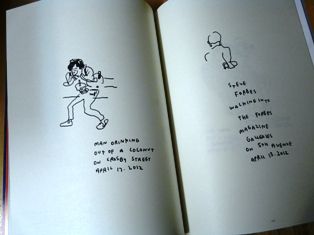 MAN DRINKING
OUT OF A COCONUT
ON CROSBY STREET
APRIL 17, 2012
STEVE
FORBES
WALKING INTO
THE FORBES
MAGAZINE
GALLERIES
ON 5TH AVENUE
APRIL 18, 2012